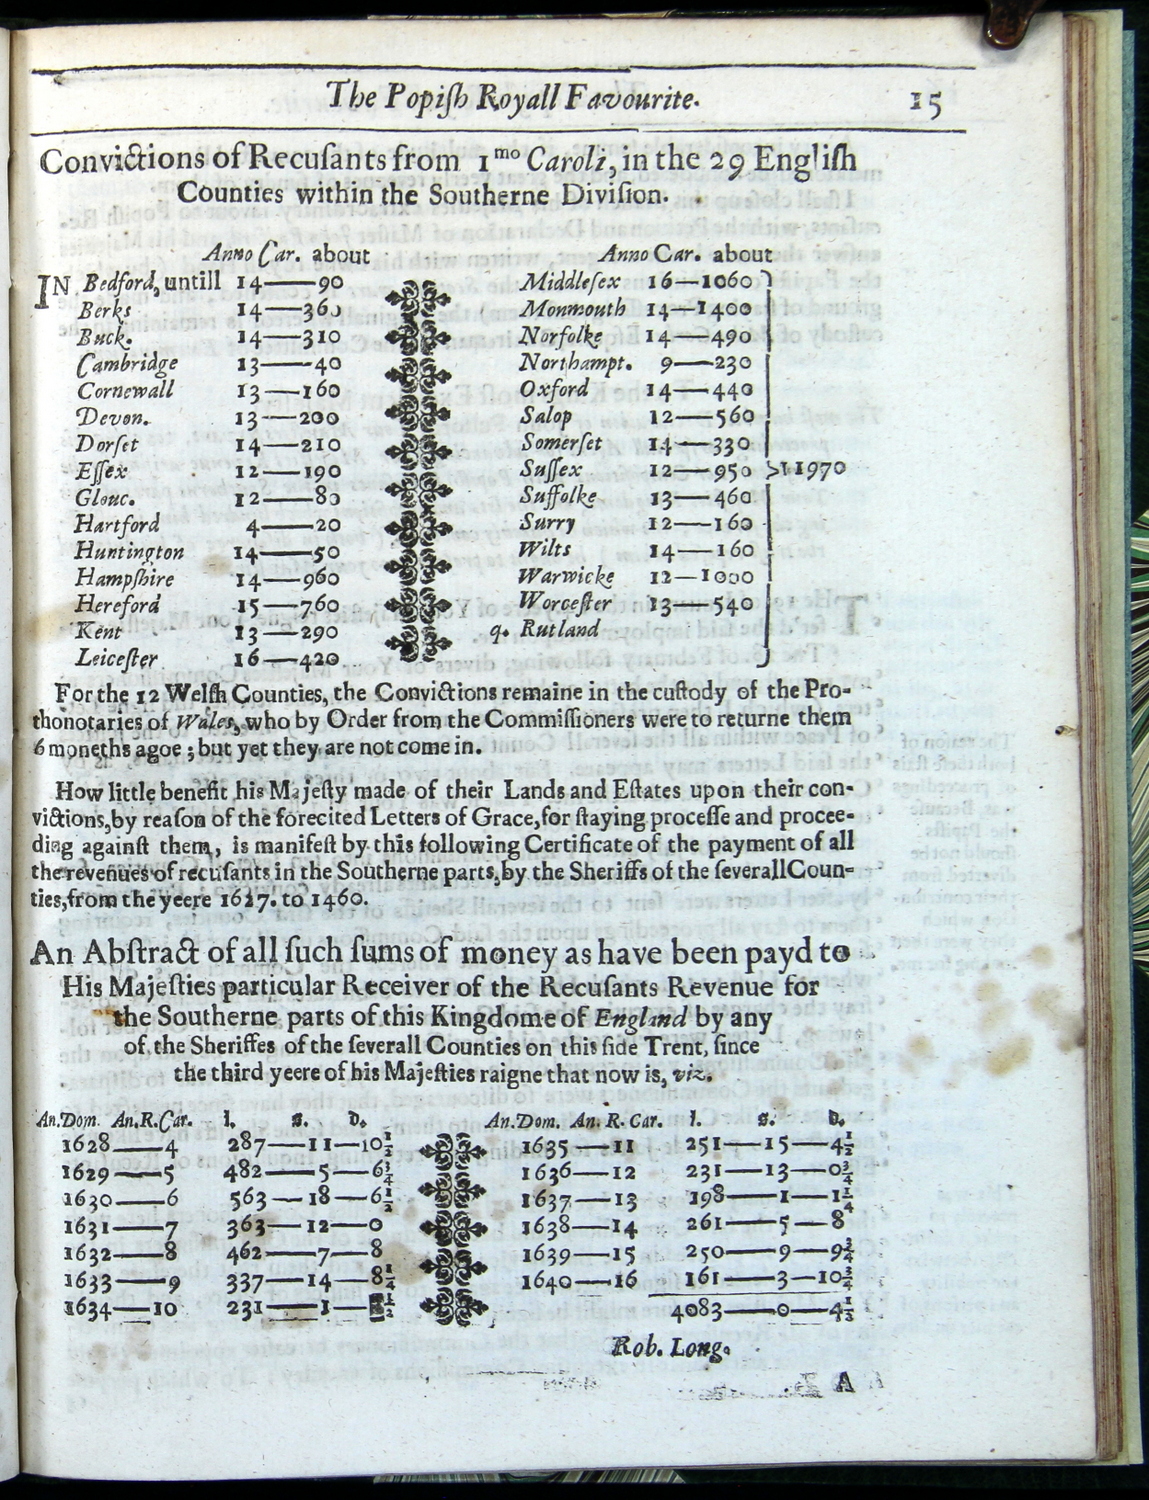 The Popiſh Royall Favourite. 15
Convictions of Recuſants from 1mo Caroli, in the 29 Engliſh
Counties within the Southerne Diviſion.
Anno Car. about
IN Bedford, untill 14——90
Berks 14——360
Buck. 14——310
Cambridge 13——40
Cornewall 13——160
Devon. 13——200
Dorſet 14——210
Eſſex 12——190
Glouc. 12——80
Hartford 4——20
Huntington 14——50
Hampſhire 14——960
Hereford 15——760
Kent 13——290
Leiceſter 16——420
Anno Car. about
Middleſex 16—1060
Monmouth 14—1400
Norfolke 14——490
Northampt. 9——230
Oxford 14——440
Salop 12——560
Somerſet 14——330
Suſſex 12——950 11970
Suffolke 13——460
Surry 12——160
Wilts 14——160
Warwicke 12—1000
Worceſter 13——540
q. Rutland
For the 12 Welſh Counties, the Convictions remaine in the cuſtody of the Pro-
thonotaries of Wales, who by Order from the Commiſſioners were to returne them
6 moneths agoe; but yet they are not come in.
How little benefit his Majeſty made of their Lands and Eſtates upon their con-
victions, by reaſon of the forecited Letters of Grace, for ſtaying proceſſe and procee-
ding againſt them, is manifeſt by this following Certificate of the payment of all
the revenues of recuſants in the Southerne parts, by the Sheriffs of the ſeverall Coun-
ties, from the yeere 1627. to 1460.
An Abſtract of all ſuch ſums of money as have been payd to
His Majeſties particular Receiver of the Recuſants Revenue for
the Southerne parts of this Kingdome of England by any
of the Sheriffes of the ſeverall Counties on this ſide Trent, ſince
the third yeere of his Majeſties raigne that now is, viz.
An.Dom. An.R.Car. l. s. D.
1628——4 287——11—10½
1629——5 482——5—6¾
1630——6 563—18—6½
1631——7 363—12—0
1632——8 462——7—8
1633——9 337—14—8¼
1634—10 231——1—
An.Dom. An. R. Car. l. s. D.
1635—11 251—15—4½
1636—12 231—13—0¾
1637—13 198——1—1¼
1638—14 261——5—8
1639—15 250——9—9¾
1640—16 161——3—10¾
4083——0—4½
Rob. Long.